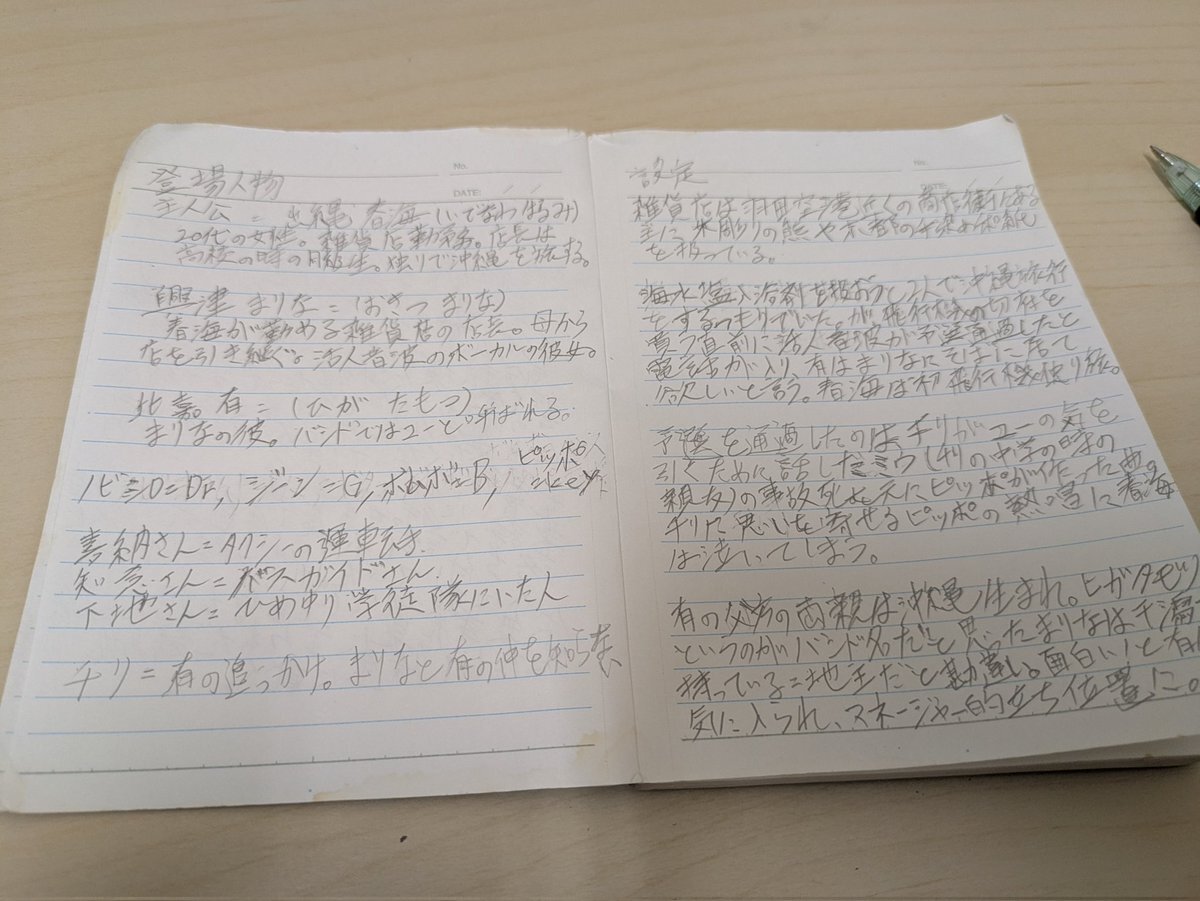 登場人物
No.
DATE
主人公 = 出縄 春海(いでなわ はるみ)
20代の女性。雑貨店勤務。店長は
高校の時の同級生。独りで沖縄を旅する。
興津 まりな = (おきつ まりな)
春海が勤める雑貨店の店長。母から
店を引き継ぐ。活人者波のボーカルの彼女。
比嘉 有 = (ひが たもつ)
まりなの彼。バンドではユーと呼ばれる。
ノビシロ=Dr, ジーン=G, =B, ピッポ=key
喜納さん=タクシーの運転手
知念さん=バスガイドさん
下地さん=ひめゆり学徒隊にいた人
チリ = 有の追っかけ。まりなと有の仲を知らない
設定
No.
雑貨店は羽田空港近くの商店街にある
主に木彫りの熊や京都の千代紙
を扱っている。
海水塩入浴剤を扱おうと2人で沖縄旅行
をするつもりでいた。が飛行機の切符を
買う直前に活人者波が予選通過したと
電話が入り、有はまりなにそばに居て
欲しいと言う。春海は初飛行機独り旅。
予選を通過したのはチリがユーの気を
引くために話したミウ(チリの中学の時の
親友)の事故死を元にピッポが作った曲
チリに思いを寄せるピッポの熱唱に春海
は泣いてしまう。
有の父方の両親は沖縄生まれ。ヒガタモツ
というのがバンド名だと思ったまりなは干潟
持っている=地主だと勘違い。面白い!と有
気に入られ、マネージャー的立ち位置に。